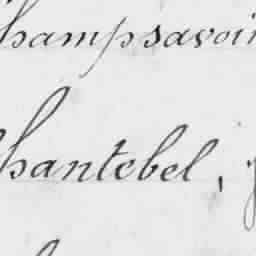 hampsavoir
hantebel,